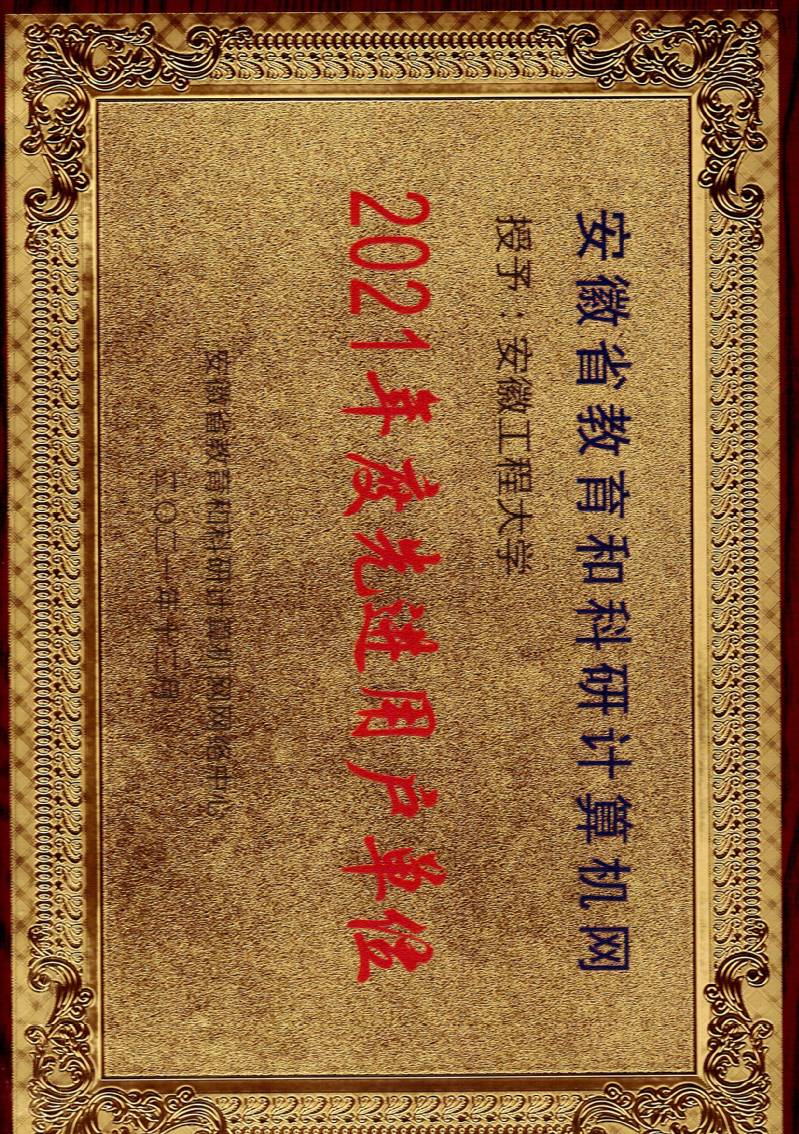 安徽省教育和科研计算机网
授予：安徽工程大学
2021年度先进用户单位
安徽省教育和科研计算机网网络中心
二〇二一年十二月